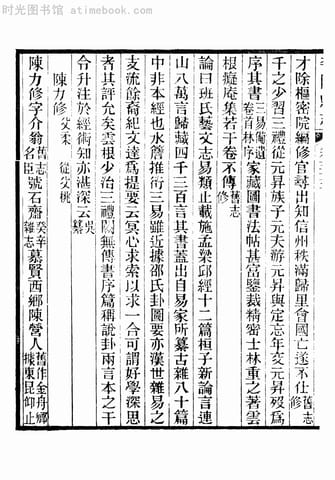 时光图书馆 atimebook.com
才除樞密院編修官尋出知信州秩滿歸里會國亡遂不仕舊志修
千之少習三禮從元昇族子元夫游元昇與定忘年交元昇歿爲
序其書三易備遺卷首林序家藏圖書法帖甚富鑒裁精密士林重之著雲
根癡庵集若干卷不傳舊志修
論曰班氏藝文志易類止載施孟梁邱經十二篇桓子新論言連
山八萬言歸藏四千三百言其書蓋出自易家所纂古雜八十篇
中非本經也水簷推衍三易雖近據邵氏卦圖要亦漢世雜易之
支流餘裔紀文達爲提要云冥心求索以求一合可謂好學深思
者其評允矣雲根少治三禮闕無傳書序篇稱說卦兩言本之干
令升注於經術知亦湛深云吳纂
陳力修父柔 從父桃
陳力修字介翁舊志名臣號石齋癸辛雜志慕賢西鄉陳營人舊作金舟鄉據東昆仰止
时光图书馆 atimebook.com